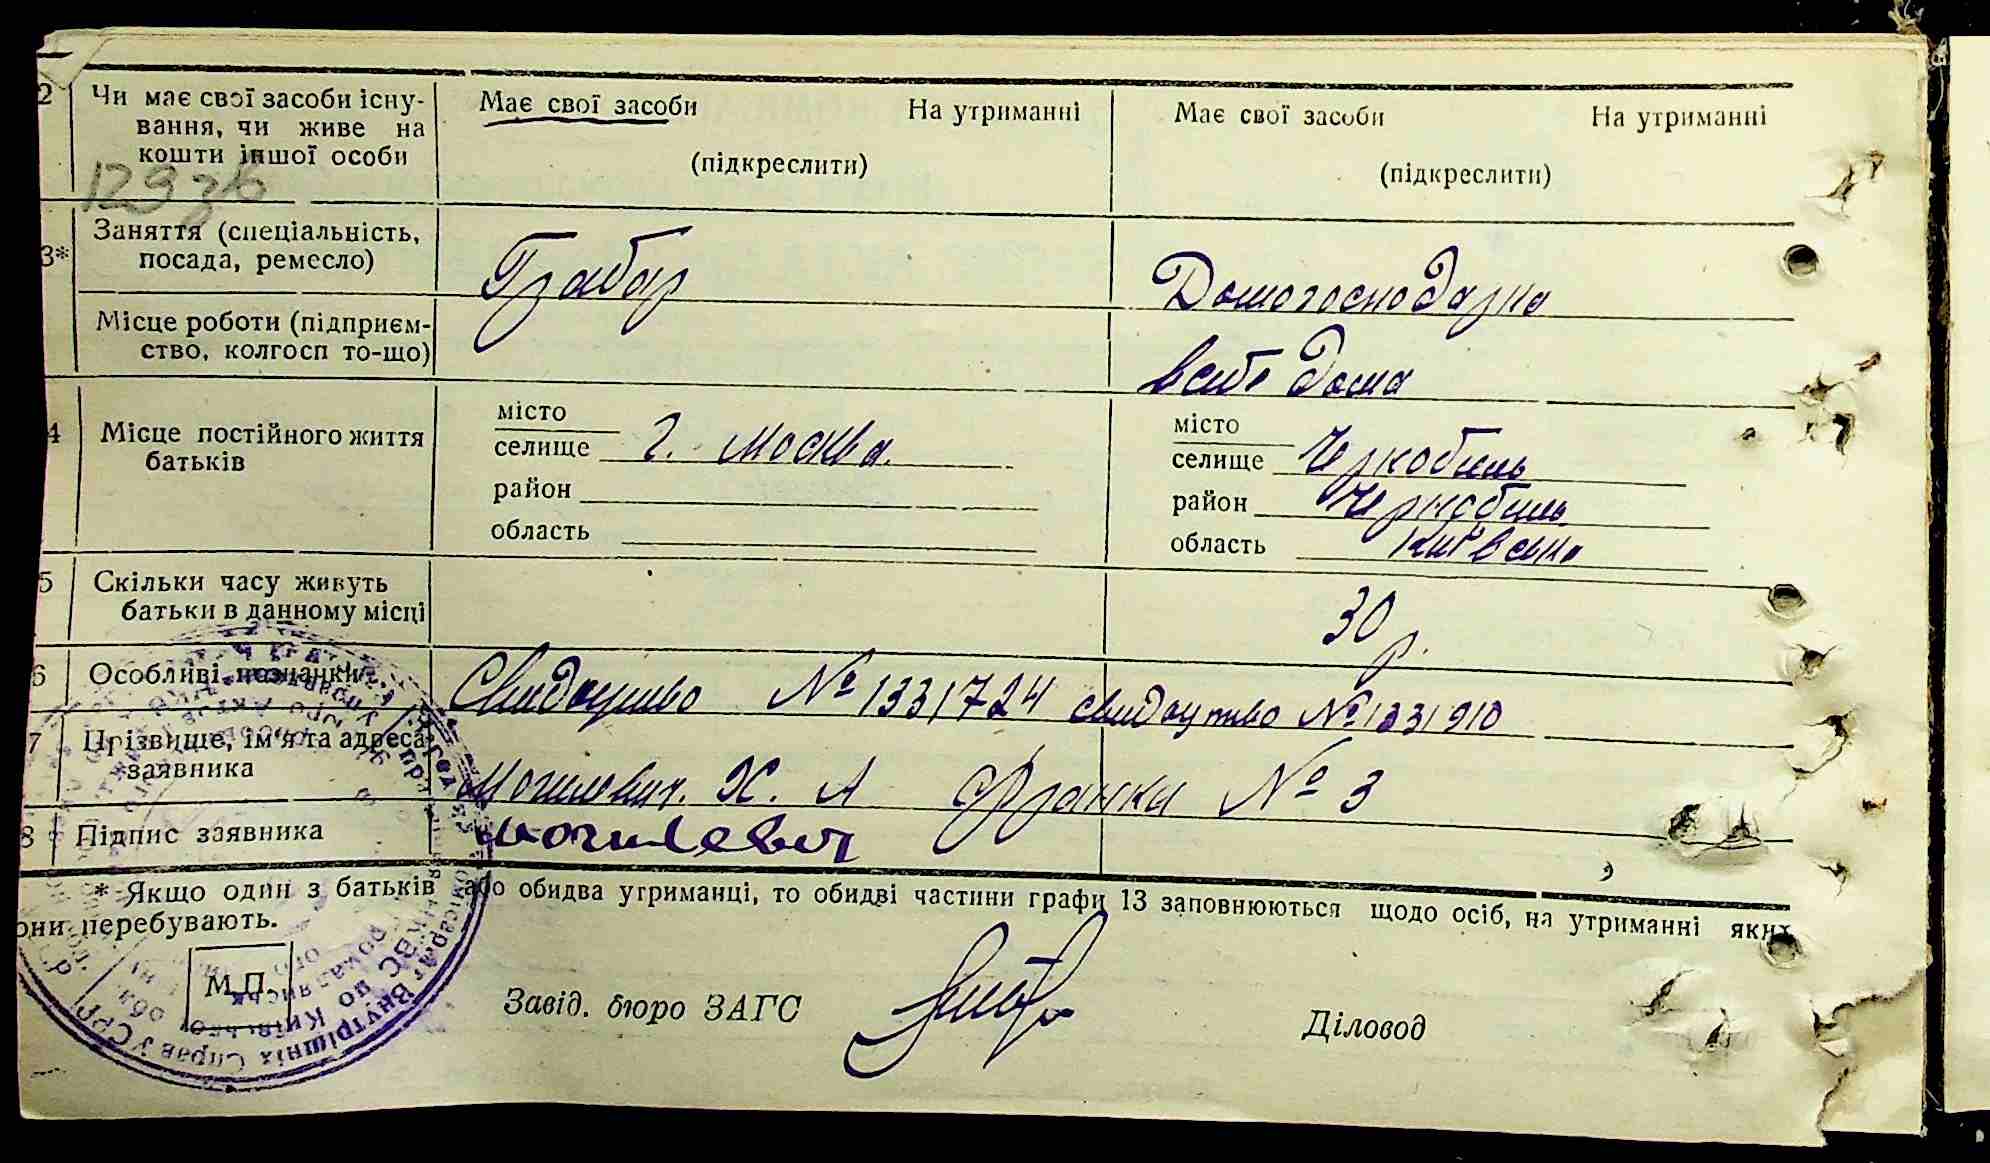 2 Чи має свої засоби існу- Має свої засоби На утриманні Має свої засоби На утриманні
вання, чи живе на
кошти іншої особи (підкреслити) (підкреслити)
Заняття (спеціальність, Грабар Домогосподарка
3* посада, ремесло)
Місце роботи (підприєм-
ство, колгосп то-що) дома
місто місто
4 Місце постійного життя селище г. Москва. селище Чернобиль
батьків район район Чернобиль
область область Київська
5 Скільки часу живуть 30 р.
батьки в данному місці
6 Особливі познанки Свидоцтво № 1331724 свидоцтво № 1331910
7 Прізвище, ім'я та адреса Могилевич. Х. А Франка № 3
заявника
8 Підпис заявника Могилевич
* Якщо один з батьків або обидва утриманці, то обидві частини графи 13 заповнюються щодо осіб, на утриманні яких
они перебувають.
М.П.
Завід. бюро ЗАГС Діловод
Внутрішніх Справ УСРР